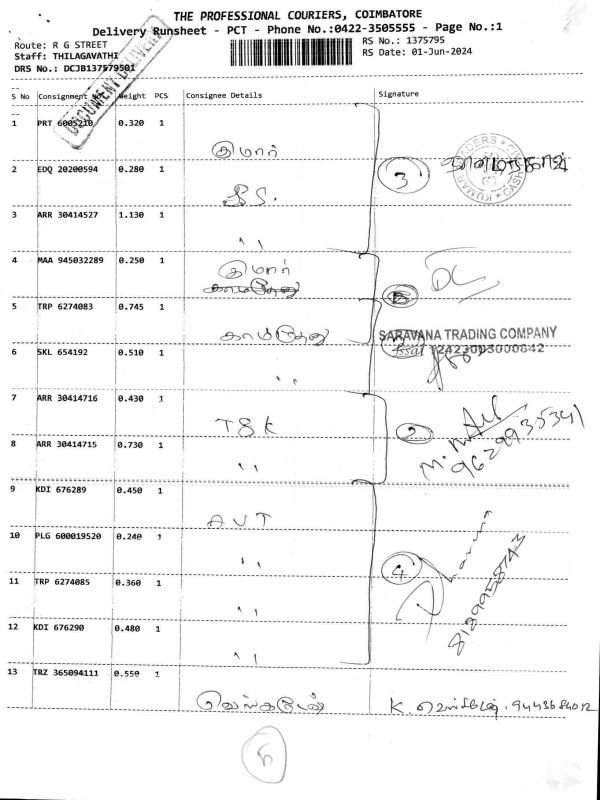 THE PROFESSIONAL COURIERS, COIMBATORE
Delivery Runsheet - PCT - Phone No.:0422-3505555 - Page No.:1
Route: R G STREET RS No.: 1375795
Staff: THILAGAVATHI RS Date: 01-Jun-2024
DRS No.: DCJB137579501
DOCUMENT DELIVERY
S No Consignment No Weight PCS Consignee Details Signature
1 PRT 6005210 0.320 1
குமார்
2 EDQ 20200594 0.280 1
3
3 ARR 30414527 1.130 1
" "
4 MAA 945032289 0.250 1
குமார்
5 TRP 6274083 0.745 1
காமதேனு
SARAVANA TRADING COMPANY
fssai 12423003000842
6 SKL 654192 0.510 1
" "
7 ARR 30414716 0.430 1
TSK
2
8 ARR 30414715 0.730 1
" "
9629935341
9 KDI 676289 0.450 1
AVT
10 PLG 600019520 0.240 1
" "
4
11 TRP 6274085 0.360 1
" "
8189958743
12 KDI 676290 0.480 1
" "
13 TRZ 365094111 0.550 1
வெங்கடேஷ்
K. 9443684012
6